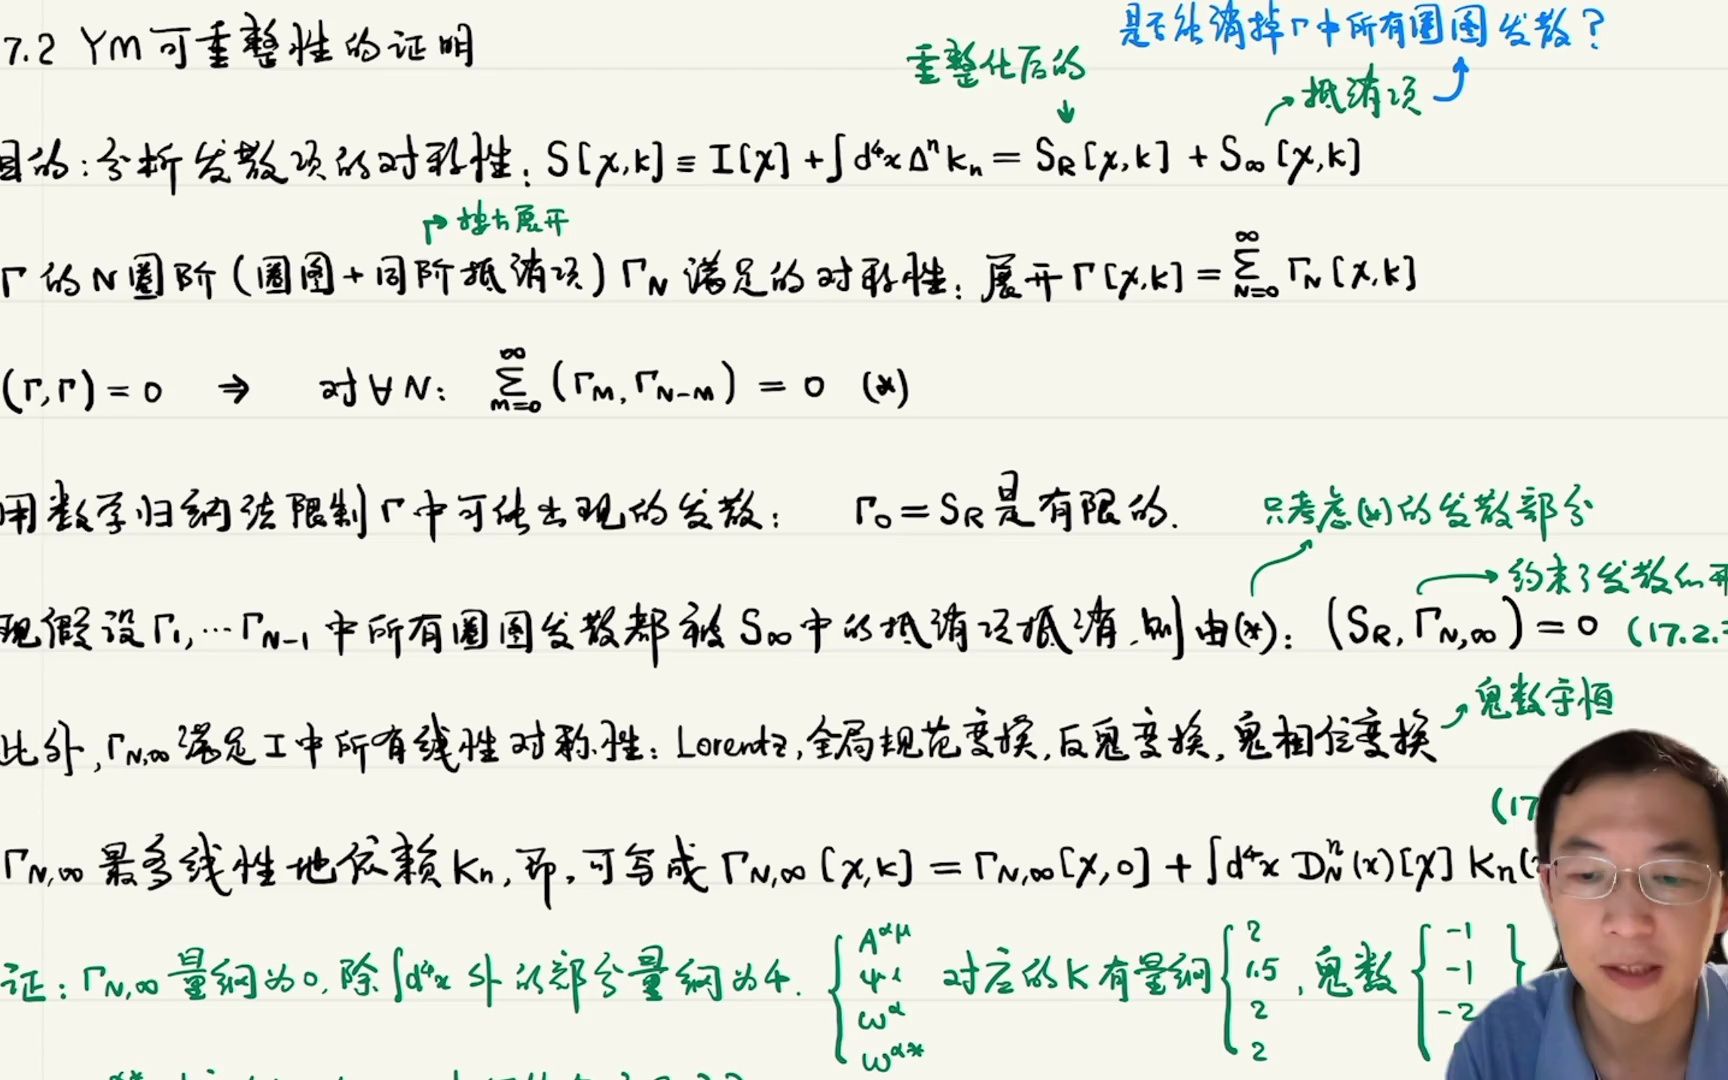 7.2 YM可重整性的证明
是否能消掉Γ中所有圈图发散?
重整化后的
抵消项
目的:分析发散项的对称性: S[χ,K] ≡ I[χ] + ∫d⁴x Δⁿ Kₙ = S_R[χ,K] + S_∞[χ,K]
按ħ展开
Γ的N圈阶(圈图+同阶抵消项) Γ_N 满足的对称性: 展开Γ[χ,K] = ∑_{N=0}^{∞} Γ_N[χ,K]
(Γ,Γ) = 0 ⇒ 对∀N: ∑_{M=0}^{∞} (Γ_M, Γ_{N-M}) = 0 (*)
用数学归纳法限制Γ中可能出现的发散: Γ₀ = S_R 是有限的.
只考虑(*)的发散部分
约束了发散的
现假设Γ₁,…Γ_{N-1}中所有圈图发散都被S_∞中的抵消项抵消,则由(*): (S_R, Γ_{N,∞}) = 0 (17.2.
鬼数守恒
此外,Γ_{N,∞}满足I中所有线性对称性: Lorentz,全局规范变换,反鬼变换,鬼相位变换
(17
Γ_{N,∞}最多线性地依赖Kₙ,即,可写成 Γ_{N,∞}[χ,K] = Γ_{N,∞}[χ,0] + ∫d⁴x D_Nⁿ(x)[χ] Kₙ(
证: Γ_{N,∞}量纲为0,除∫d⁴x外的部分量纲为4. { A^{αμ} ψ^l ω^α ω^{α*} 对应的K有量纲 { 2 1.5 2 2 ,鬼数 { -1 -1 -2 }